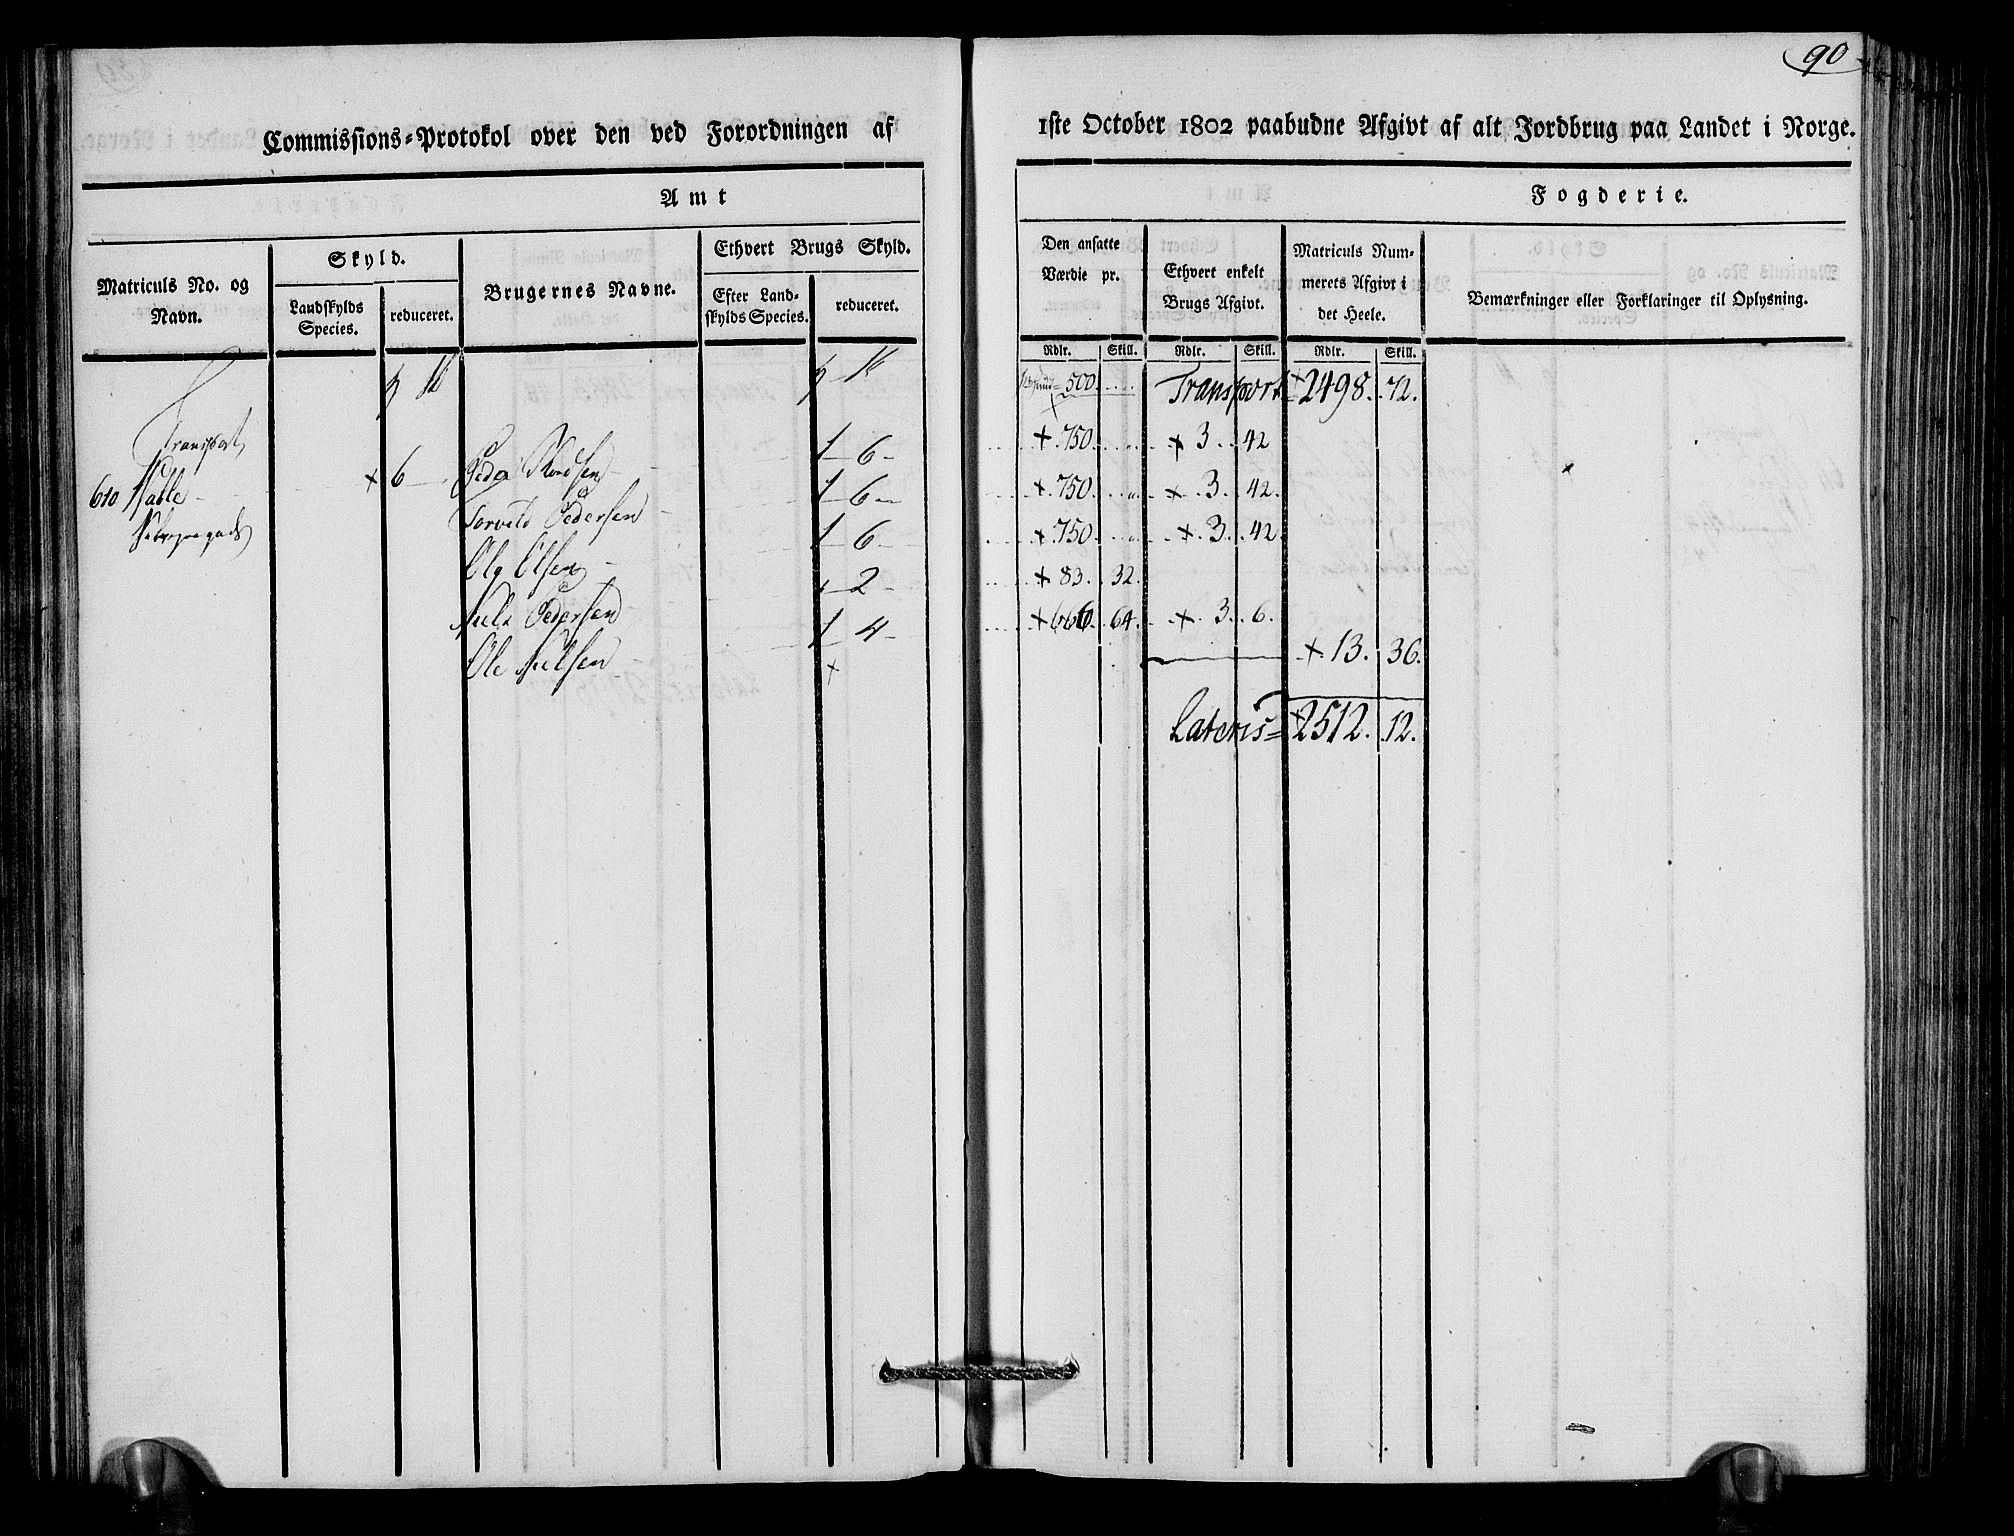 90
Commissions-Protokol over den ved Forordningen af 1ste October 1802 paabudne Afgivt af alt Jordbrug paa Landet i Norge.
Amt
Fogderie.
Matriculs No. og Navn.
Skyld.
Landskylds Species.
reduceret.
Brugernes Navne.
Ethvert Brugs Skyld.
Efter Landskylds Species.
reduceret.
Den ansatte Værdie pr.
Ethvert enkelt Brugs Afgivt.
Matriculs Nummerets Afgivt i det Heele.
Bemærkninger eller Forklaringer til Oplysning.
Rdlr. Skill. Rdlr. Skill. Rdlr. Skill.
500. Transport 2498. 72.
Transport
610 6 Peder 1 6 750. 3. 42
Pedersen 1 6 750. 3. 42.
Ole Olsen 1 6 750. 3. 42
Niels Pedersen 2 83. 32.
Ole Nielsen 1 4 666. 64. 3. 6.
13. 36.
Lateris 2512. 12.